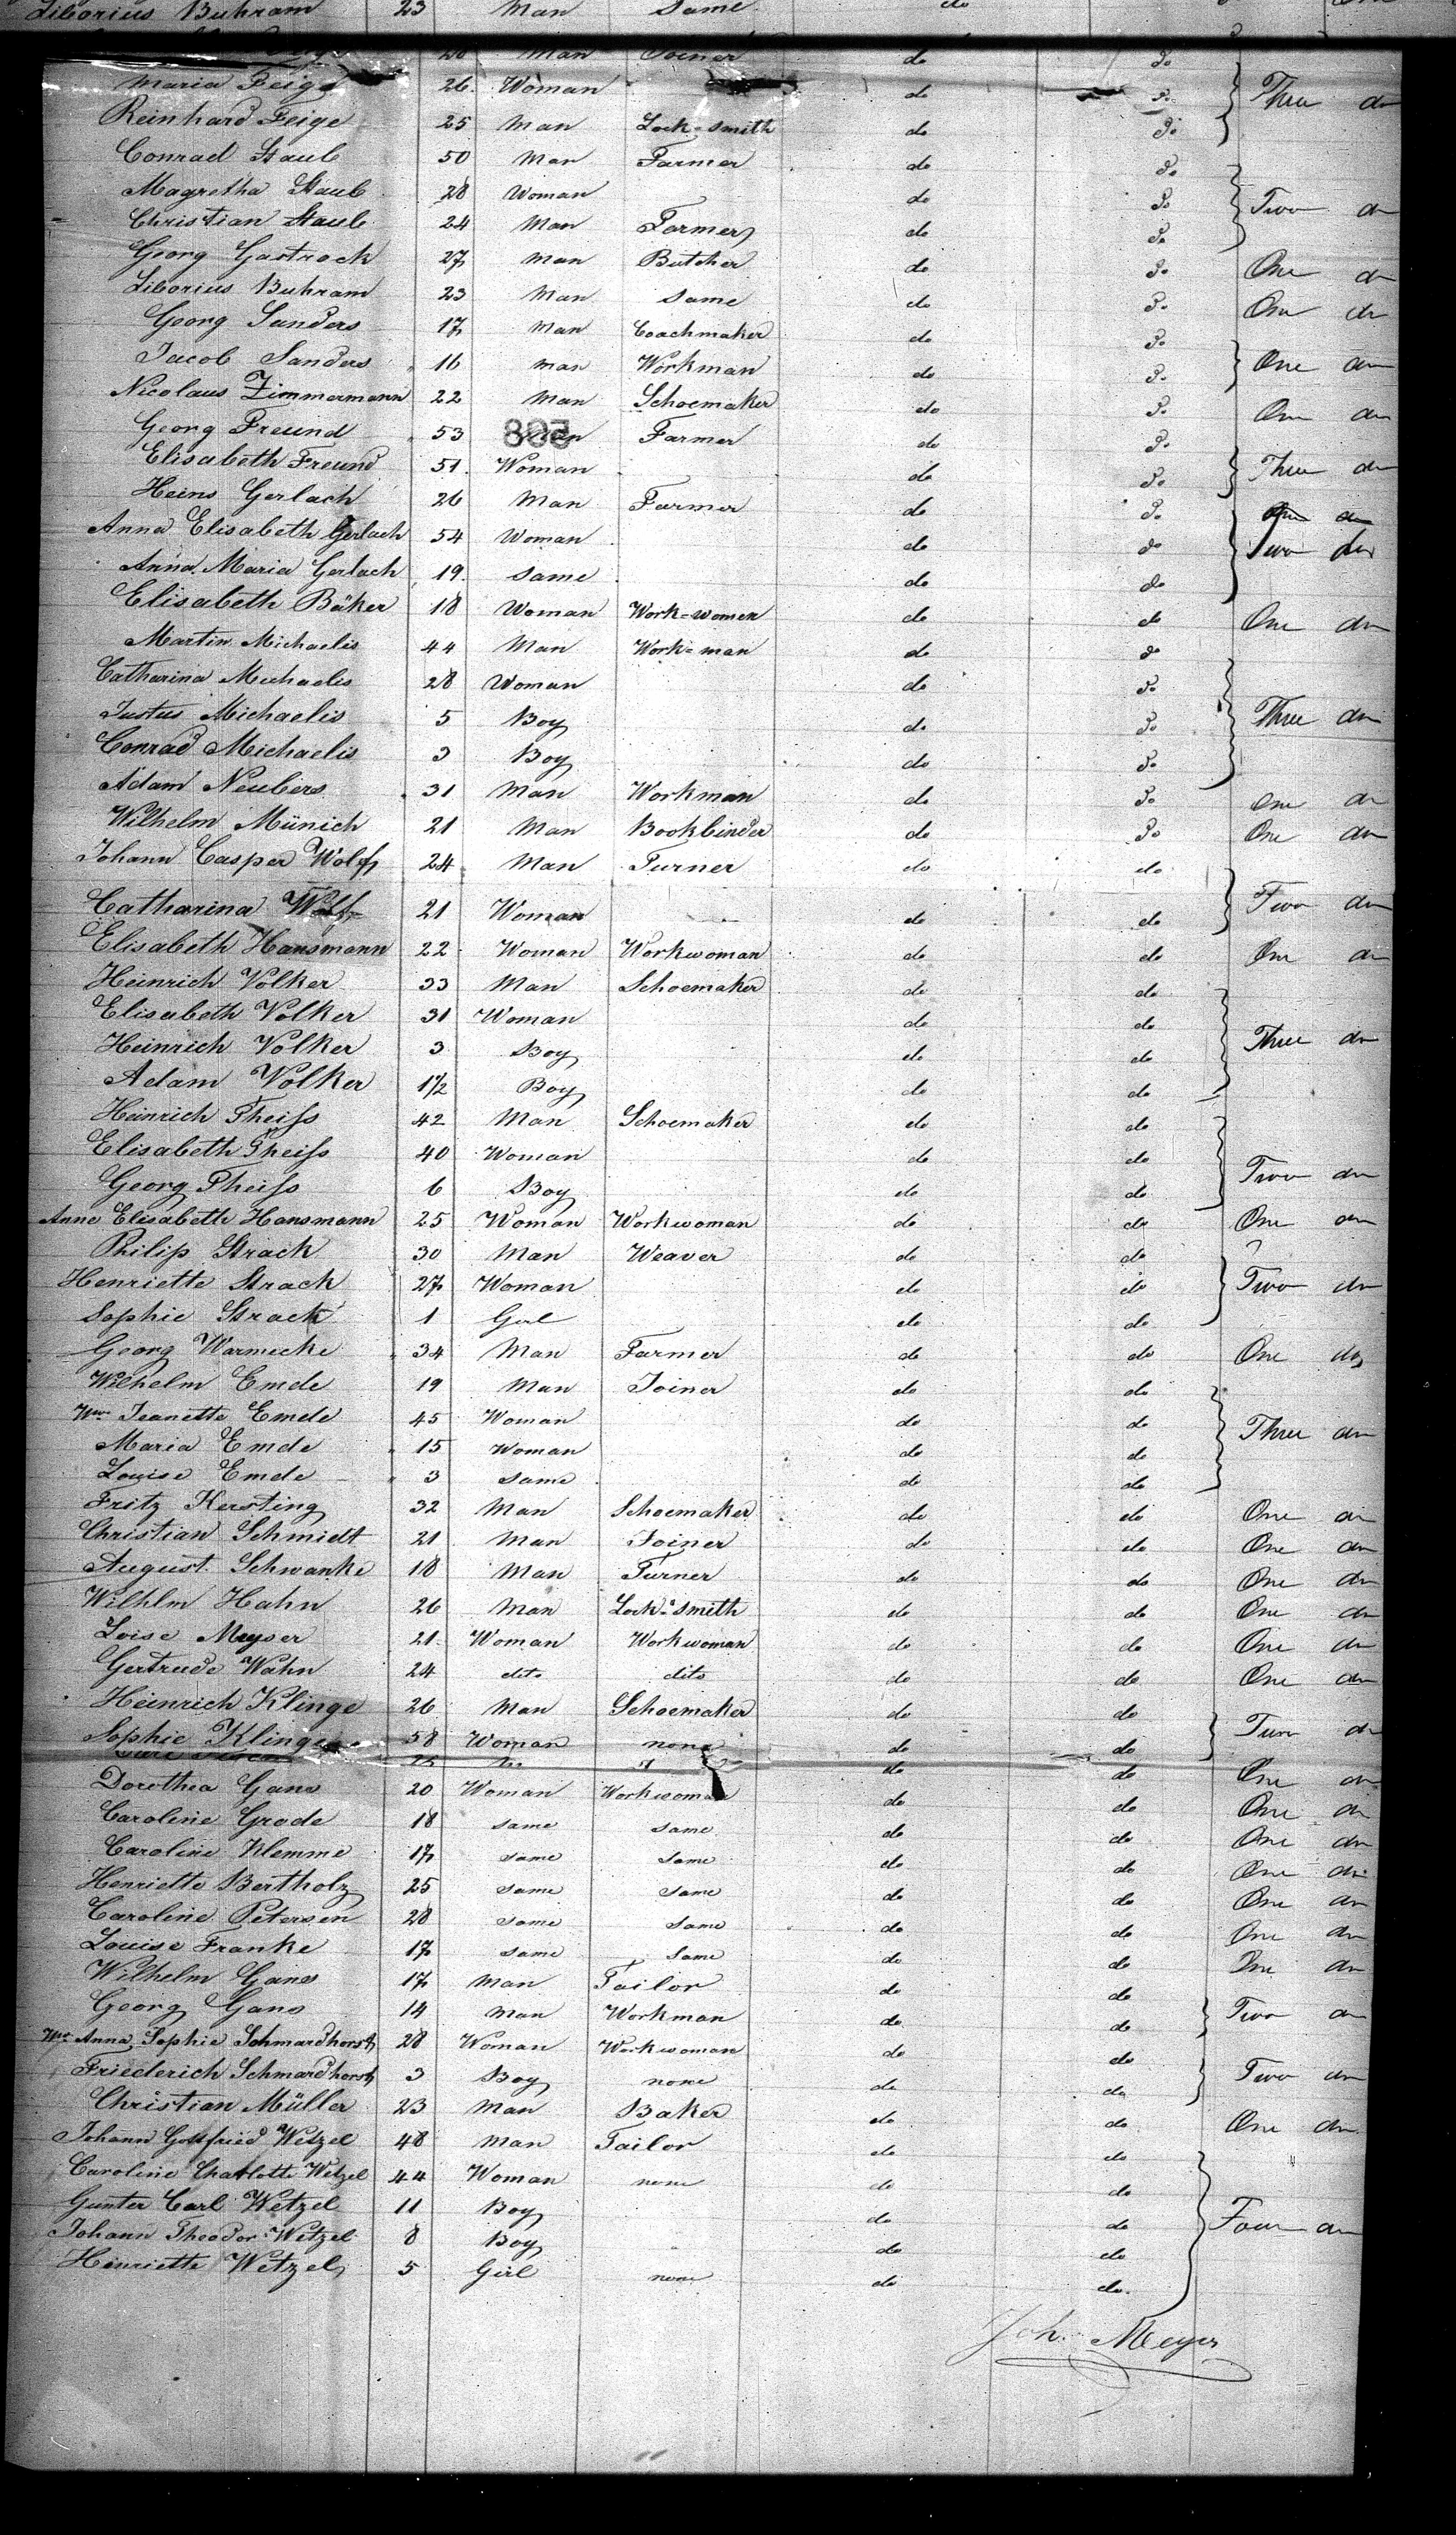 Liborius Buhram 23 Man Same do
20 Man Joiner do do
Maria Feige 26 Woman do do Three do
Reinhard Feige 25 Man Lock=smith do do
Conrad Staub 50 Man Farmer do do
Magretha Staub 28 Woman do do Two do
Christian Staub 24 Man Farmer do do
Georg Gastrock 27 Man Butcher do do One do
Liborius Buhram 23 Man Same do do One do
Georg Sanders 17 Man Coachmaker do do
Jacob Sanders 16 man Workman do do One do
Nicolaus Zimmermann 22 Man Schoemaker do do One do
Georg Freund 53 Man Farmer do do
Elisabeth Freund 51 Woman do do Three do
Heins Gerlach 26 Man Farmer do do One do
Anna Elisabeth Gerlach 54 Woman do do Two do
Anna Maria Gerlach 19 same do do
Elisabeth Bäker 18 Woman Work=women do do One do
Martin Michaelis 44 Man Work=man do do
Catharina Michaelis 28 Woman do do
Justus Michaelis 5 Boy do do Three do
Conrad Michaelis 3 Boy do do
Adam Neubers 31 Man Workman do do One do
Wilhelm Münich 21 Man Bookbinder do do One do
Johann Casper Wolf 24 Man Turner do do
Catharina Wolf 21 Woman do do Two do
Elisabeth Hansmann 22 Woman Workwoman do do One do
Heinrich Volker 33 Man Schoemaker do do
Elisabeth Volker 31 Woman do do
Heinrich Volker 3 Boy do do Three do
Adam Volker 1½ Boy do do
Heinrich Theiss 42 Man Schoemaker do do
Elisabeth Theiss 40 Woman do do
Georg Theiss 6 Boy do do Two do
Anne Elisabeth Hansmann 25 Woman Workwoman do do One do
Philip Strack 30 Man Weaver do do
Henriette Strack 27 Woman do do Two do
Sophie Strack 1 Girl do do
Georg Warmecke 34 Man Farmer do do One do
Wilhelm Emde 19 Man Joiner do do
Wwe Jeanette Emde 45 Woman do do
Maria Emde 15 Woman do do Three do
Louise Emde 3 same do do
Fritz Kersting 32 Man Schoemaker do do One do
Christian Schmidt 21 Man Joiner do do One do
August Schwanke 18 Man Turner do do One do
Wilhlm Hahn 26 Man Lock=smith do do One do
Loise Meyser 21 Woman Workwoman do do One do
Gertrude Wahn 24 dito dito do do One do
Heinrich Klinge 26 Man Schoemaker do do
Sophie Klinge 58 Woman none do do Two do
do do One do
Dorothea Gans 20 Woman Workwoman do do One do
Caroline Grode 18 same same do do One do
Caroline Klemme 17 same same do do One do
Henriette Bertholz 25 same same do do One do
Caroline Petersen 28 same same do do One do
Louise Franke 17 same same do do One do
Wilhelm Gans 17 Man Tailor do do
Georg Gans 14 Man Workman do do Two do
Wwe Anna Sophie Schmardhorst 28 Woman Workwoman do do
Friederich Schmardhorst 3 Boy none do do Two do
Christian Müller 23 Man Baker do do One do
Johann Gottfried Wetzel 48 Man Tailor do do
Caroline Charlotte Wetzel 44 Woman none do do
Gunter Carl Wetzel 11 Boy do do Four do
Johann Theodor Wetzel 8 Boy do do
Henriette Wetzel 5 Girl none do do
Joh. Meyer